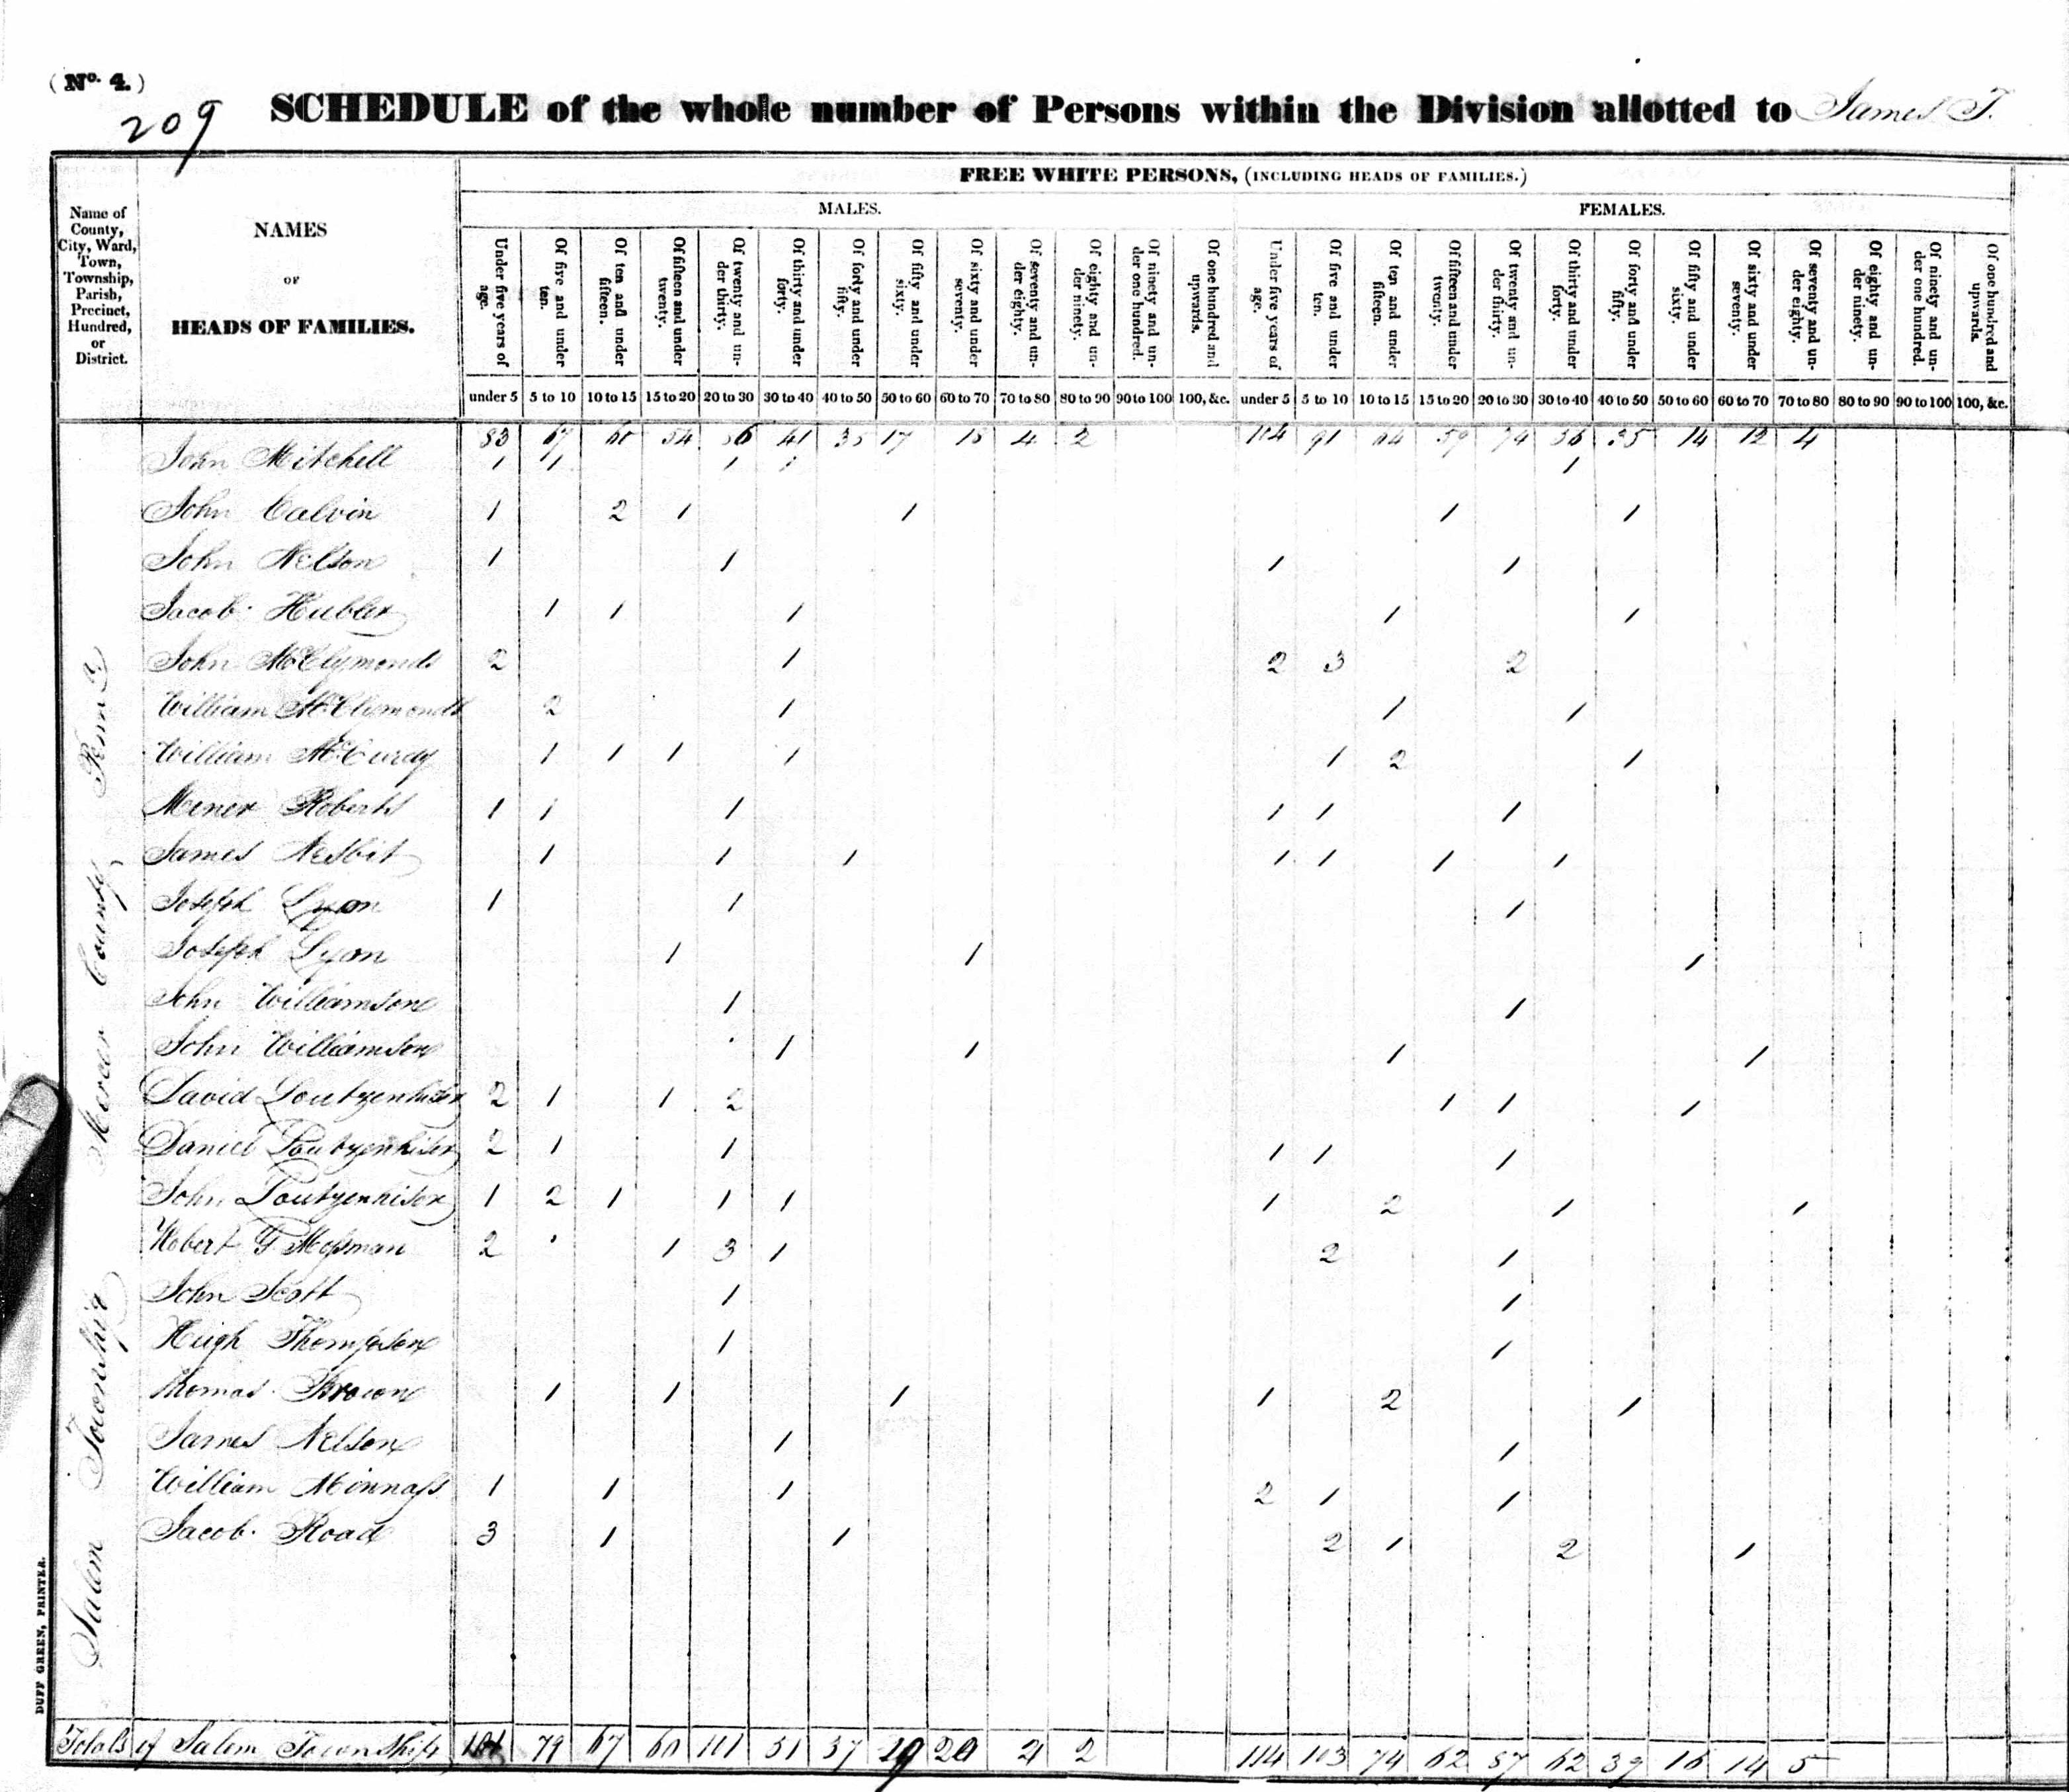 (No. 4.)
209
SCHEDULE of the whole number of Persons within the Division allotted to James T.
FREE WHITE PERSONS, (INCLUDING HEADS OF FAMILIES.)
Name of County, City, Ward, Town, Township, Parish, Precinct, Hundred, or District.
NAMES
OF
HEADS OF FAMILIES.
MALES.
FEMALES.
Under five years of age.
Of five and under ten.
Of ten and under fifteen.
Of fifteen and under twenty.
Of twenty and under thirty.
Of thirty and under forty.
Of forty and under fifty.
Of fifty and under sixty.
Of sixty and under seventy.
Of seventy and under eighty.
Of eighty and under ninety.
Of ninety and under one hundred.
Of one hundred and upwards.
Under five years of age.
Of five and under ten.
Of ten and under fifteen.
Of fifteen and under twenty.
Of twenty and under thirty.
Of thirty and under forty.
Of forty and under fifty.
Of fifty and under sixty.
Of sixty and under seventy.
Of seventy and under eighty.
Of eighty and under ninety.
Of ninety and under one hundred.
Of one hundred and upwards.
under 5 5 to 10 10 to 15 15 to 20 20 to 30 30 to 40 40 to 50 50 to 60 60 to 70 70 to 80 80 to 90 90 to 100 100, &c. under 5 5 to 10 10 to 15 15 to 20 20 to 30 30 to 40 40 to 50 50 to 60 60 to 70 70 to 80 80 to 90 90 to 100 100, &c.
83 67 60 54 41 35 17 4 2 104 91 64 59 74 56 35 14 12 4
John Mitchell 1 1 1 1 1
John Calvin 1 2 1 1 1 1
John Nelson 1 1 1 1
Jacob Hubler 1 1 1 1 1
John McClymonds 2 1 2 3 2
William McClymonds 2 1 1 1
William McCurdy 1 1 1 1 1 2 1
Miner Roberts 1 1 1 1 1 1
James Nesbit 1 1 1 1 1 1 1
Joseph Lyon 1 1 1
Joseph Lyon 1 1 1
John Williamson 1 1
John Williamson 1 1 1 1
David Loutzenhiser 2 1 1 2 1 1 1
Daniel Loutzenhiser 2 1 1 1 1 1
John Loutzenhiser 1 2 1 1 1 1 2 1 1
Robert G Mossman 2 1 3 1 2 1
John Scott 1 1
Hugh Thompson 1 1
Thomas Brown 1 1 1 1 2 1
James Nelson 1 1
William Minnass 1 1 1 2 1 1
Jacob Road 3 1 1 2 1 2 1
Salem Township Mercer County Penna
Totals of Salem Township 101 79 67 60 101 51 37 29 20 4 2 114 103 74 62 87 62 39 16 14 5
DUFF GREEN, PRINTER.